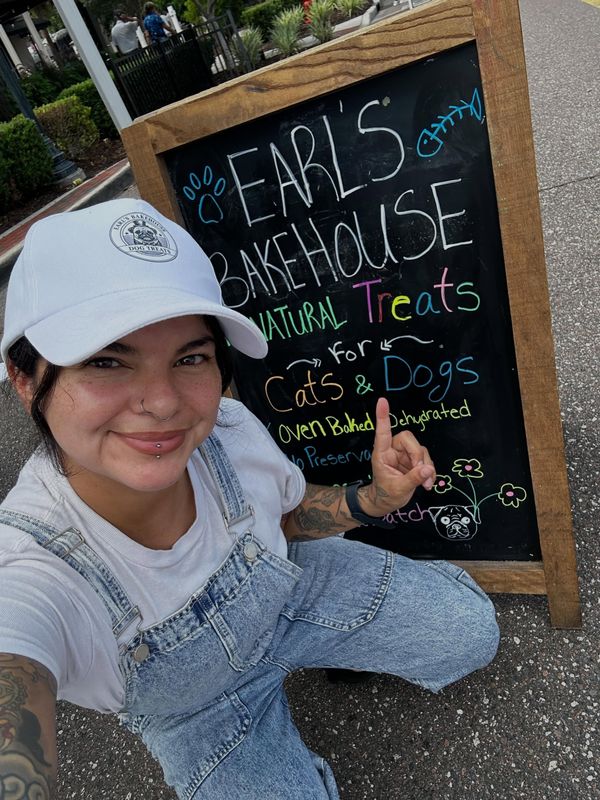 EARL'S BAKEHOUSE
DOG TREATS
EARL'S
BAKEHOUSE
NATURAL Treats
for
Cats & Dogs
Oven Baked Dehydrated